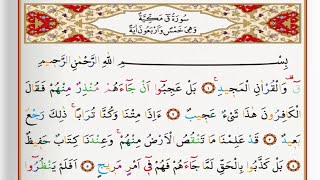 سُورَةُ قٓ مَكِّيَّةٌ
وَهِيَ خَمْسٌ وَأَرْبَعُونَ اٰيَةً
بِسْــــــمِ اللّٰهِ الرَّحْمٰنِ الرَّحِيمِ
قٓ وَالْقُرْاٰنِ الْمَجِيدِ ۝١ بَلْ عَجِبُٓوا اَنْ جَٓاءَهُمْ مُنْذِرٌ مِنْهُمْ فَقَالَ
الْكَافِرُونَ هٰذَا شَيْءٌ عَجِيبٌ ۝٢ ءَاِذَا مِتْنَا وَكُنَّا تُرَابًاۚ ذٰلِكَ رَجْعٌ
بَعِيدٌ ۝٣ قَدْ عَلِمْنَا مَا تَنْقُصُ الْاَرْضُ مِنْهُمْۚ وَعِنْدَنَا كِتَابٌ حَفِيظٌ
۝٤ بَلْ كَذَّبُوا بِالْحَقِّ لَمَّا جَٓاءَهُمْ فَهُمْ فِٓي اَمْرٍ مَرِيجٍ ۝٥ اَفَلَمْ يَنْظُرُٓوا